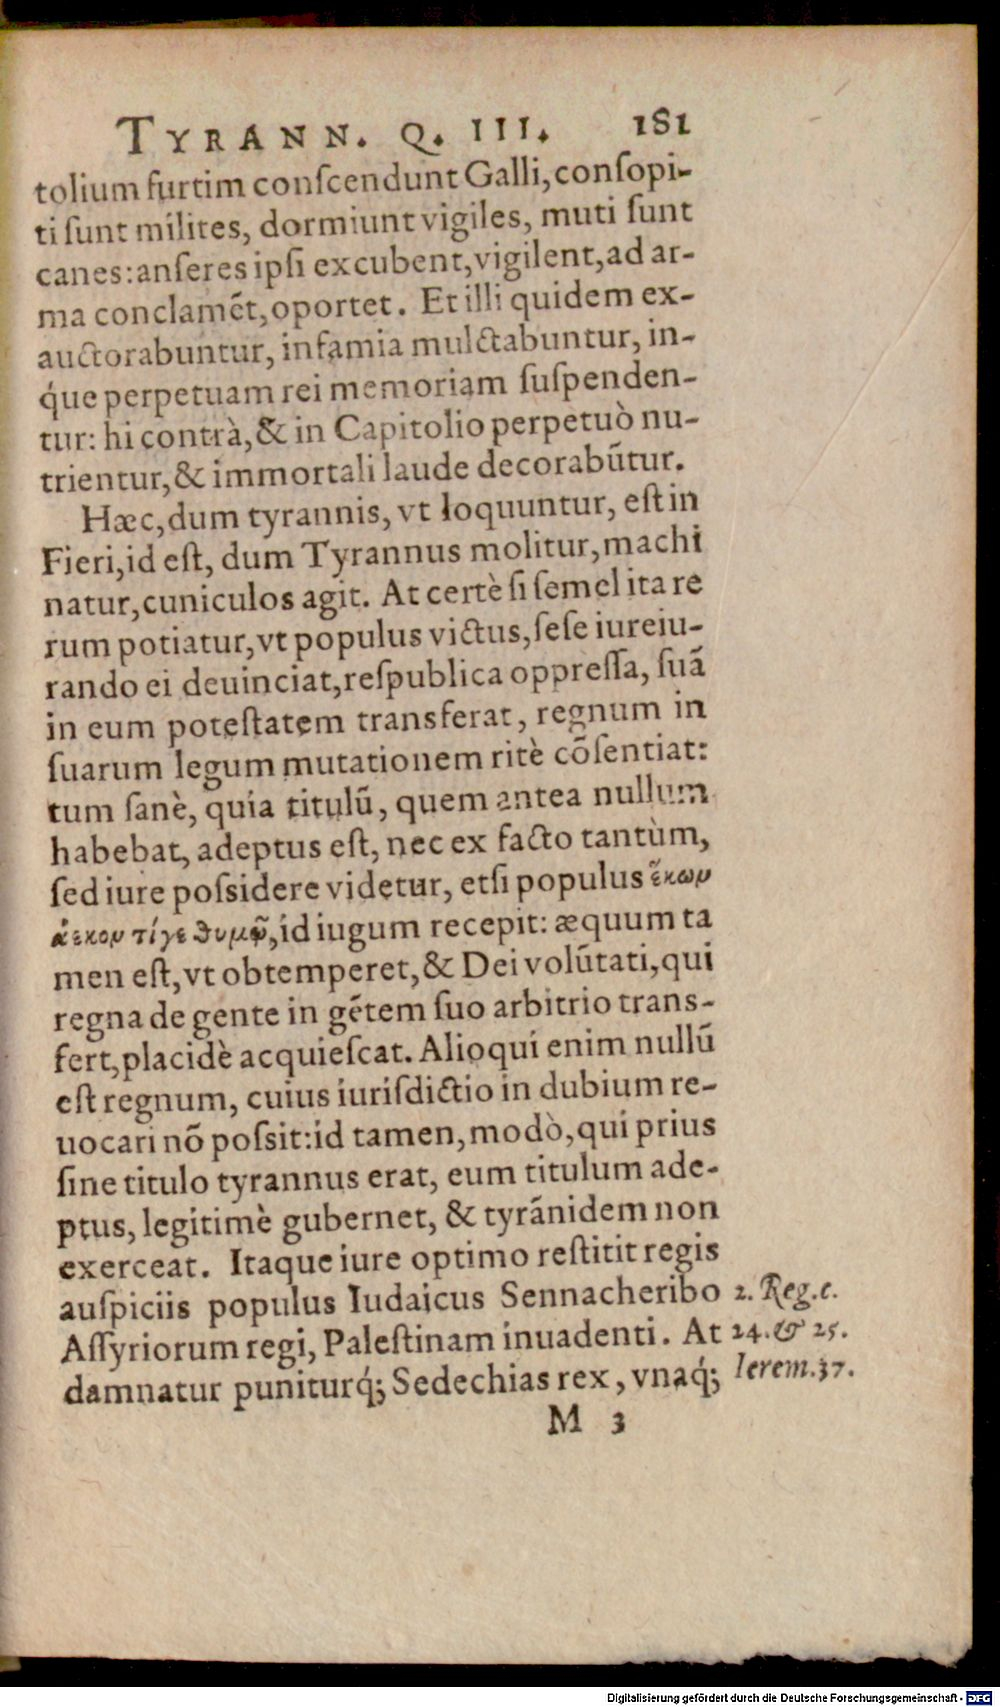 TYRANN. Q. III. 181
tolium furtim conſcendunt Galli, conſopi-
ti ſunt milites, dormiunt vigiles, muti ſunt
canes: anſeres ipſi excubent, vigilent, ad ar-
ma conclamẽt, oportet. Et illi quidem ex-
auctorabuntur, infamia mulctabuntur, in-
q́ue perpetuam rei memoriam ſuſpenden-
tur: hi contrà, & in Capitolio perpetuò nu-
trientur, & immortali laude decorabũtur.
Hæc, dum tyrannis, vt loquuntur, eſt in
Fieri, id eſt, dum Tyrannus molitur, machi
natur, cuniculos agit. At certè ſi ſemel ita re
rum potiatur, vt populus victus, ſeſe iureiu-
rando ei deuinciat, reſpublica oppreſſa, ſuã
in eum poteſtatem transferat, regnum in
ſuarum legum mutationem ritè cõſentiat:
tum ſanè, quia titulũ, quem antea nullum
habebat, adeptus eſt, nec ex facto tantùm,
ſed iure poſsidere videtur, etſi populus ἕκων
ἀεκον τίγε θυμῷ, id iugum recepit: æquum ta
men eſt, vt obtemperet, & Dei volũtati, qui
regna de gente in gẽtem ſuo arbitrio trans-
fert, placidè acquieſcat. Alioqui enim nullũ
eſt regnum, cuius iuriſdictio in dubium re-
uocari nõ poſsit: id tamen, modò, qui prius
ſine titulo tyrannus erat, eum titulum ade-
ptus, legitimè gubernet, & tyrãnidem non
exerceat. Itaque iure optimo reſtitit regis
auſpiciis populus Iudaicus Sennacheribo
Aſſyriorum regi, Paleſtinam inuadenti. At
damnatur puniturq́; Sedechias rex, vnaq́;
2. Reg. c.
24. & 25.
Ierem. 37.
M 3
Digitalisierung gefördert durch die Deutsche Forschungsgemeinschaft - DFG